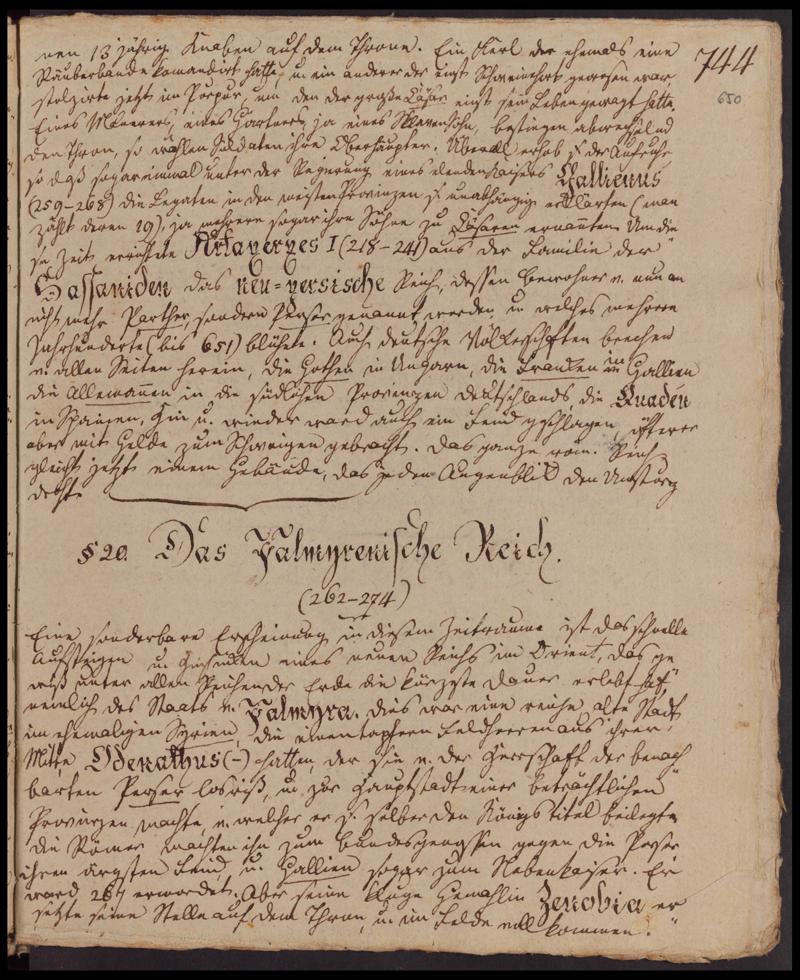 744
650
nen 13 jährig. Knaben auf dem Throne. Ein Kerl der ehemals eine
Räuberbande komandirt hatte, u. ein anderer der einst Schweinehirt gewesen war
stolzirte jetzt im Purpur, um den der große Cäsar einst sein Leben gewagt hatte.
Eines Maurers, eines Gärtners, ja eines Sklaven Sohn, bestiegen abwechselnd
den Thron, so wählen Soldaten ihre Oberhäupter. Überall erhob s. der Aufruhr
so daß sogar einmal unter der Regierung eines elenden Kaisers Gallienus
(259–268) die Legaten in den meisten Provinzen s. unabhängig erklärten (man
zählt deren 19), ja mehrere sogar ihre Söhne zu Cäsaren ernannten. Um die
se Zeit errichtete Artaxerxes I (218–241) aus der Familie der
Sassaniden das neu=persische Reich, dessen Bewohner v. nun an
nicht mehr Parther, sondern Perser genannt werden, u. welches mehrere
Jahrhunderte (bis 651) blühete. Auch deutsche Völkerschaften brechen
v. allen Seiten herein, die Gothen in Ungarn, die Franken in Gallien
die Allemannen in die südlichen Provinzen Deutschlands die Quaden
in Spanien, hin u. wieder ward auch ein Feind geschlagen, öfterer
aber mit Gelde zum Schweigen gebracht. Das ganze röm. Reich
gleicht jetzt einem Gebäude, das jeden Augenblik den Umsturz
drohte
§ 20. Das Palmyrenische Reich.
(262–274)
Eine sonderbare Erscheinung in diesem Zeitraume ist das schnelle
Aufsteigen u. Hinsinken eines neuen Reichs im Orient, das ge
wiß unter allen Reichen der Erde die kürzeste Dauer erlebt hat,
nemlich des Staats v. Palmyra. Dies war eine reiche, alte Stadt
im ehemaligen Syrien, die einen tapfern Feldherren aus ihrer
Mitte Odenathus (–) hatten, der sie v. der Herrschaft der benach
barten Perser losriß, u. zur Hauptstadt einer beträchtlichen
Provinzen machte, in welcher er s. selber den Königstitel beilegte
die Römer machten ihn zum Bundesgenossen gegen die Perser
ihren ärgsten Feind, u. Gallien sogar zum Nebenkaiser. Er
ward 267 ermordet. Aber seine kluge Gemahlin Zenobia er
setzte seine Stelle auf dem Thron, u. im Felde vollkommen.